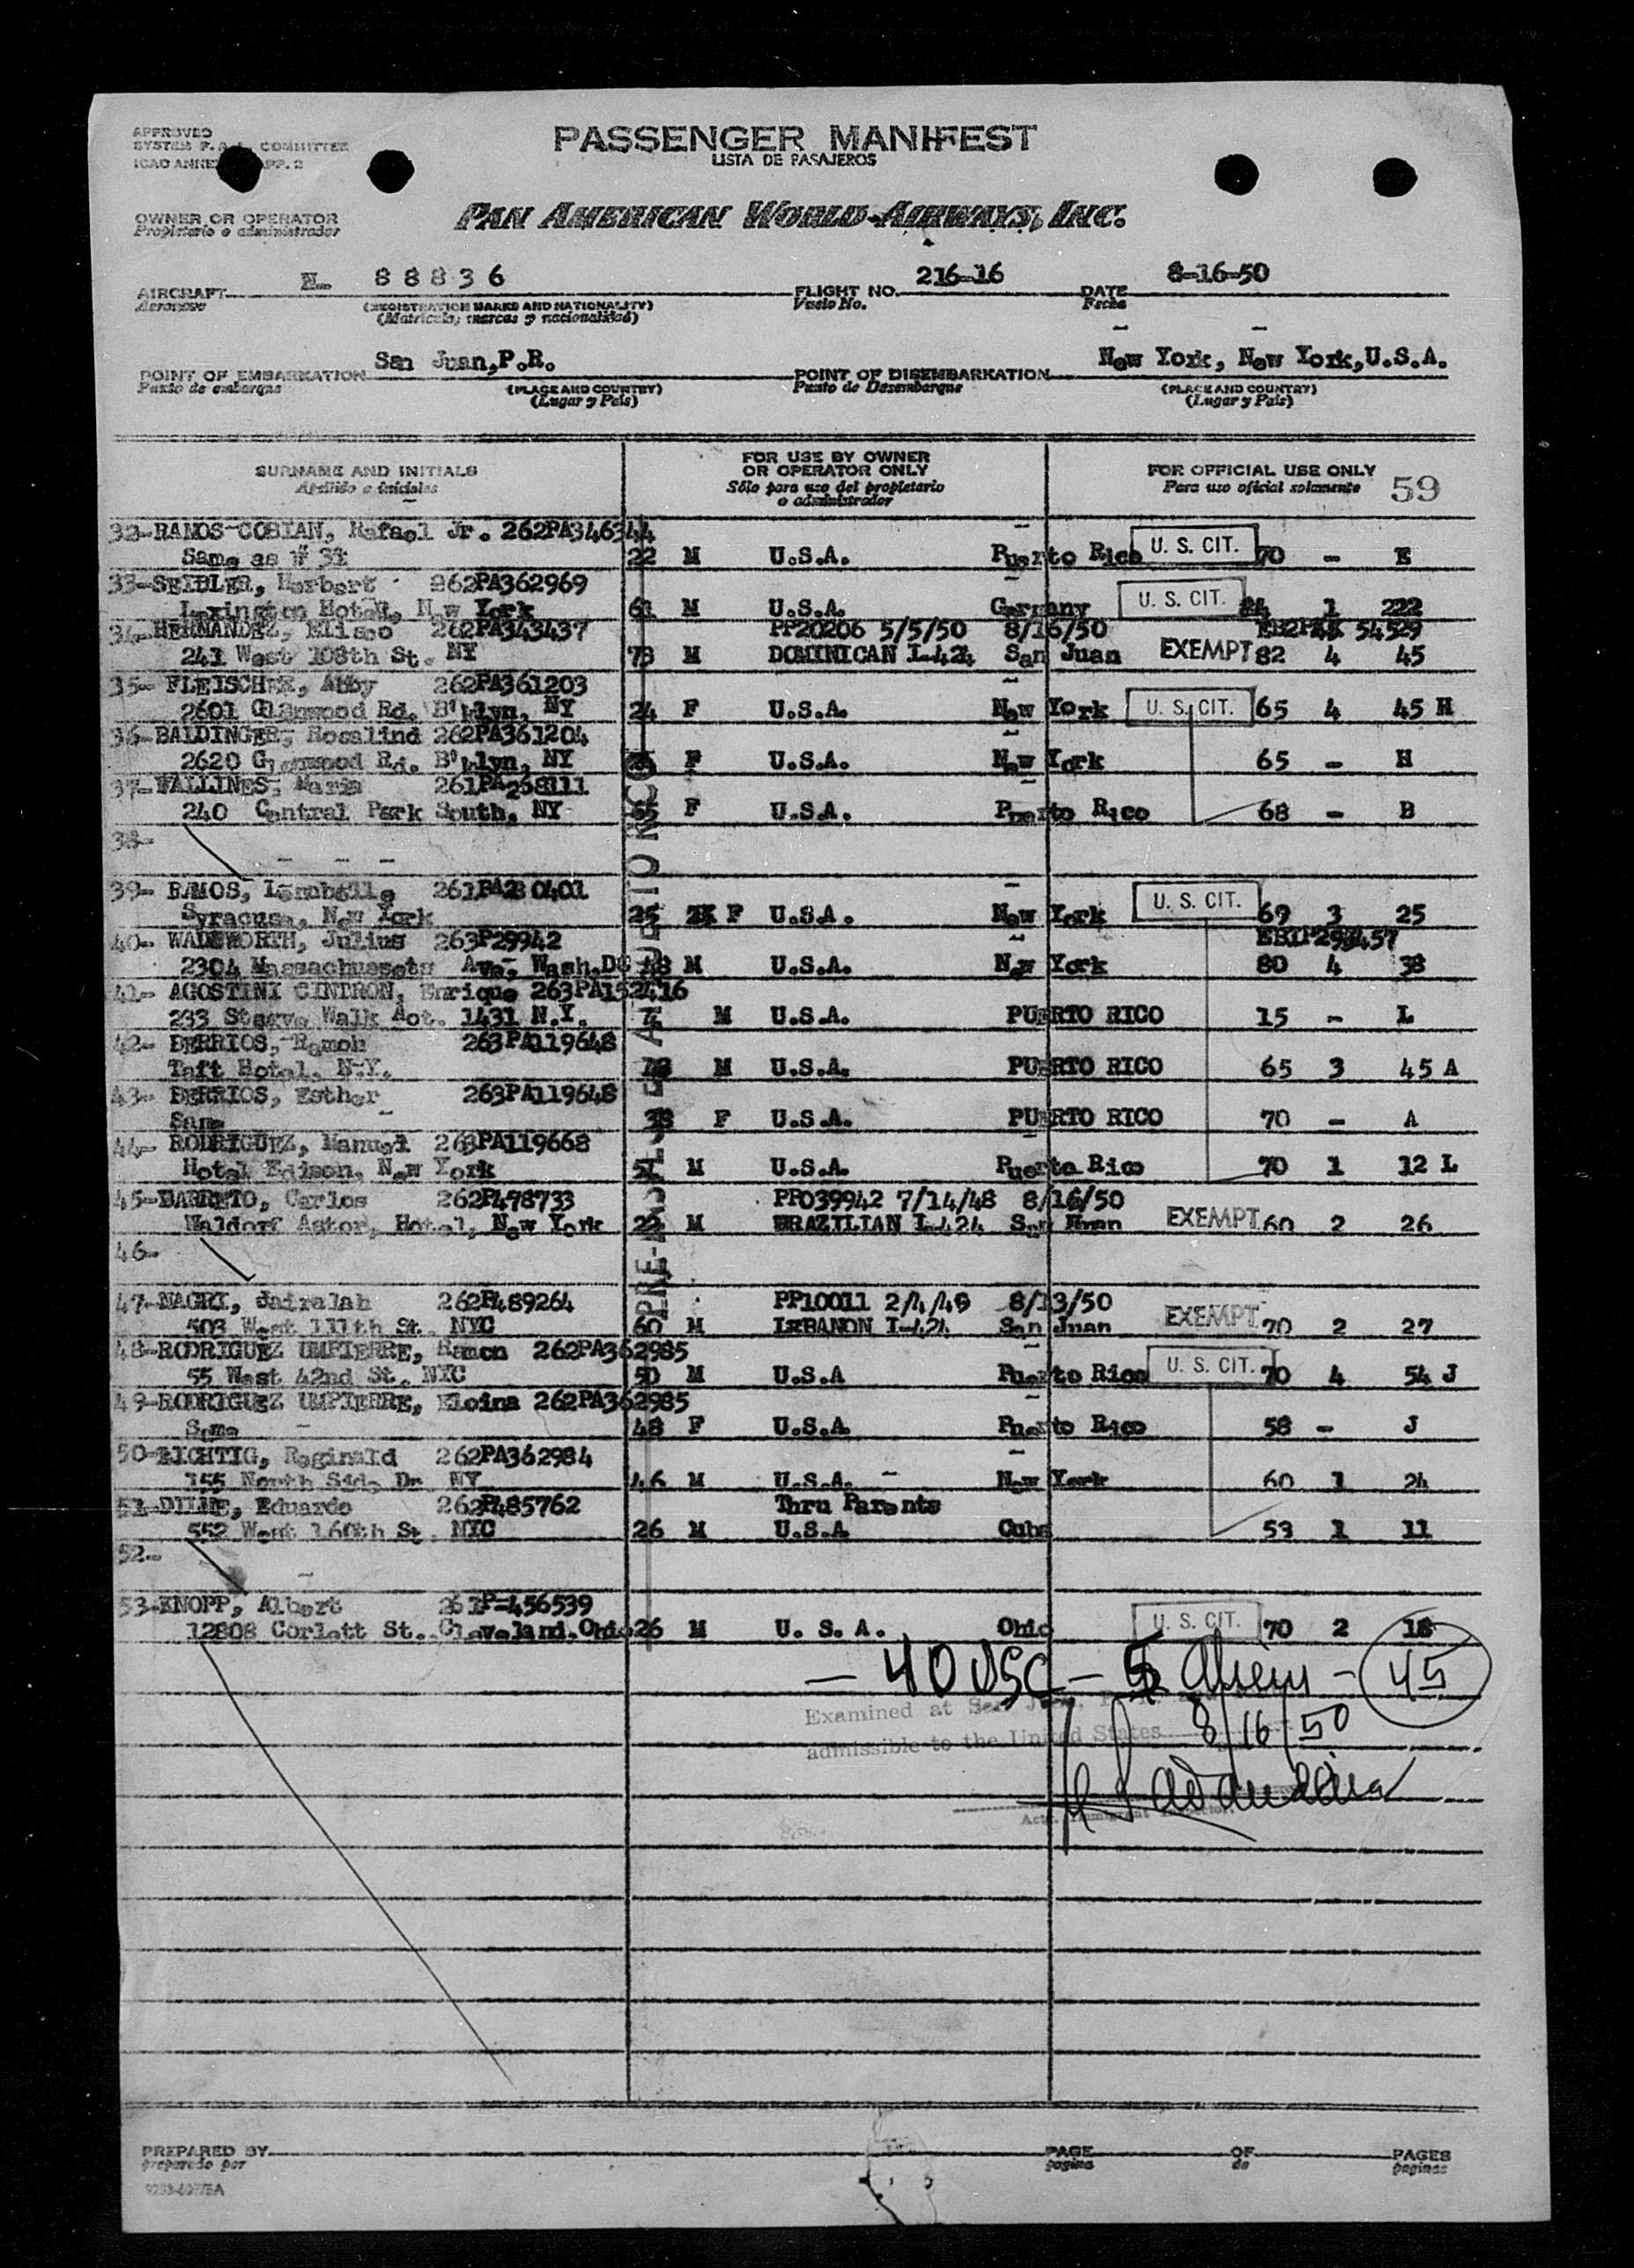 APPROVED
SYSTEM F. A. L. COMMITTEE
ICAO ANNEX APP. 2
PASSENGER MANIFEST
LISTA DE PASAJEROS
OWNER OR OPERATOR
Propietario o administrador
PAN AMERICAN WORLD AIRWAYS, INC.
AIRCRAFT N- 88836 FLIGHT NO. 216-16 DATE 8-16-50
Aeronave (REGISTRATION MARKS AND NATIONALITY) Vuelo No. Fecha
(Matricula, marcas y nacionalidad)
POINT OF EMBARKATION San Juan,P.R. POINT OF DISEMBARKATION New York, New York,U.S.A.
Punto de embarque (PLACE AND COUNTRY) Punto de Desembarque (PLACE AND COUNTRY)
(Lugar y Pais) (Lugar y Pais)
SURNAME AND INITIALS FOR USE BY OWNER OR OPERATOR ONLY FOR OFFICIAL USE ONLY
Apellido e iniciales Sólo para uso del propietario o administrador Para uso oficial solamente 59
32-RAMOS COBIAN, Rafael Jr. 262PA346344
Same as # 31 22 M U.S.A. Puerto Rico U. S. CIT. 70 - E
33-SEIDLER, Herbert 262PA362969
Lexington Hotel, New York 61 M U.S.A. Germany U. S. CIT. 1 222
34-HERNANDEZ, Eliseo 262PA343437 PP20206 5/5/50 8/16/50 54529
241 West 108th St. NY 73 M DOMINICAN I-424 San Juan EXEMPT 82 4 45
35- FLEISCHER, Abby 262PA361203
2601 Glenwood Rd. B'klyn, NY 24 F U.S.A. New York U. S. CIT. 65 4 45 H
36-BALDINGER, Rosalind 262PA361204
2620 Glenwood Rd. B'klyn, NY F U.S.A. New York 65 - H
37-FALLINES, Maria 261PA268111
240 Central Park South, NY 55 F U.S.A. Puerto Rico 68 - B
38-
39- RAMOS, 261PA280401
Syracuse, New York 25 F U.S.A. New York U. S. CIT. 69 3 25
40- WADSWORTH, Julius 263P29942
2304 Massachusects Ave. Wash.DC 48 M U.S.A. New York 80 4 38
41- AGOSTINI CINTRON, Enrique 263PA152416
233 Walk Apt. 1431 N.Y. M U.S.A. PUERTO RICO 15 - L
42- BERRIOS, Ramon 263PA119648
Taft Hotel, N.Y. M U.S.A. PUERTO RICO 65 3 45 A
43- BERRIOS, Esther 263PA119648
Same 38 F U.S.A. PUERTO RICO 70 - A
44- RODRIGUEZ, Manuel 263PA119668
Hotel Edison, New York 51 M U.S.A. Puerto Rico 70 1 12 L
45-BARRETO, Carlos 262P498733 PP039942 7/14/48 8/16/50
Waldorf Astor, Hotel, New York 22 M BRAZILIAN I-424 San Juan EXEMPT 60 2 26
46-
47-NAGRI, Jairalah 262P489264 PP10011 2/4/48 8/13/50
503 West 111th St. NYC 60 M LEBANON I-424 San Juan EXEMPT 70 2 27
48-RODRIGUEZ UMPIERRE, Ramon 262PA362985
55 West 42nd St., NYC 50 M U.S.A Puerto Rico U. S. CIT. 70 4 54 J
49-RODRIGUEZ UMPIERRE, Eloina 262PA362985
Same 48 F U.S.A. Puerto Rico 58 - J
50-RICHTIG, Reginald 262PA362984
155 North Side Dr NY 46 M U.S.A. New York 60 1 24
51-DIHE, Eduardo 262P485762 Thru Parents
552 West 160th St. NYC 26 M U.S.A Cuba 53 1 11
52-
53-KNOPP, Albert 261P-456539
12808 Corlett St., Cleveland,Ohio 26 M U. S. A. Ohio U. S. CIT. 70 2 18
- 40 USC - 5 Aliens - 45
Examined at San Juan,
admissible to the United States 8/16/50
PREPARED BY PAGE OF PAGES
preparado por pagina de paginas